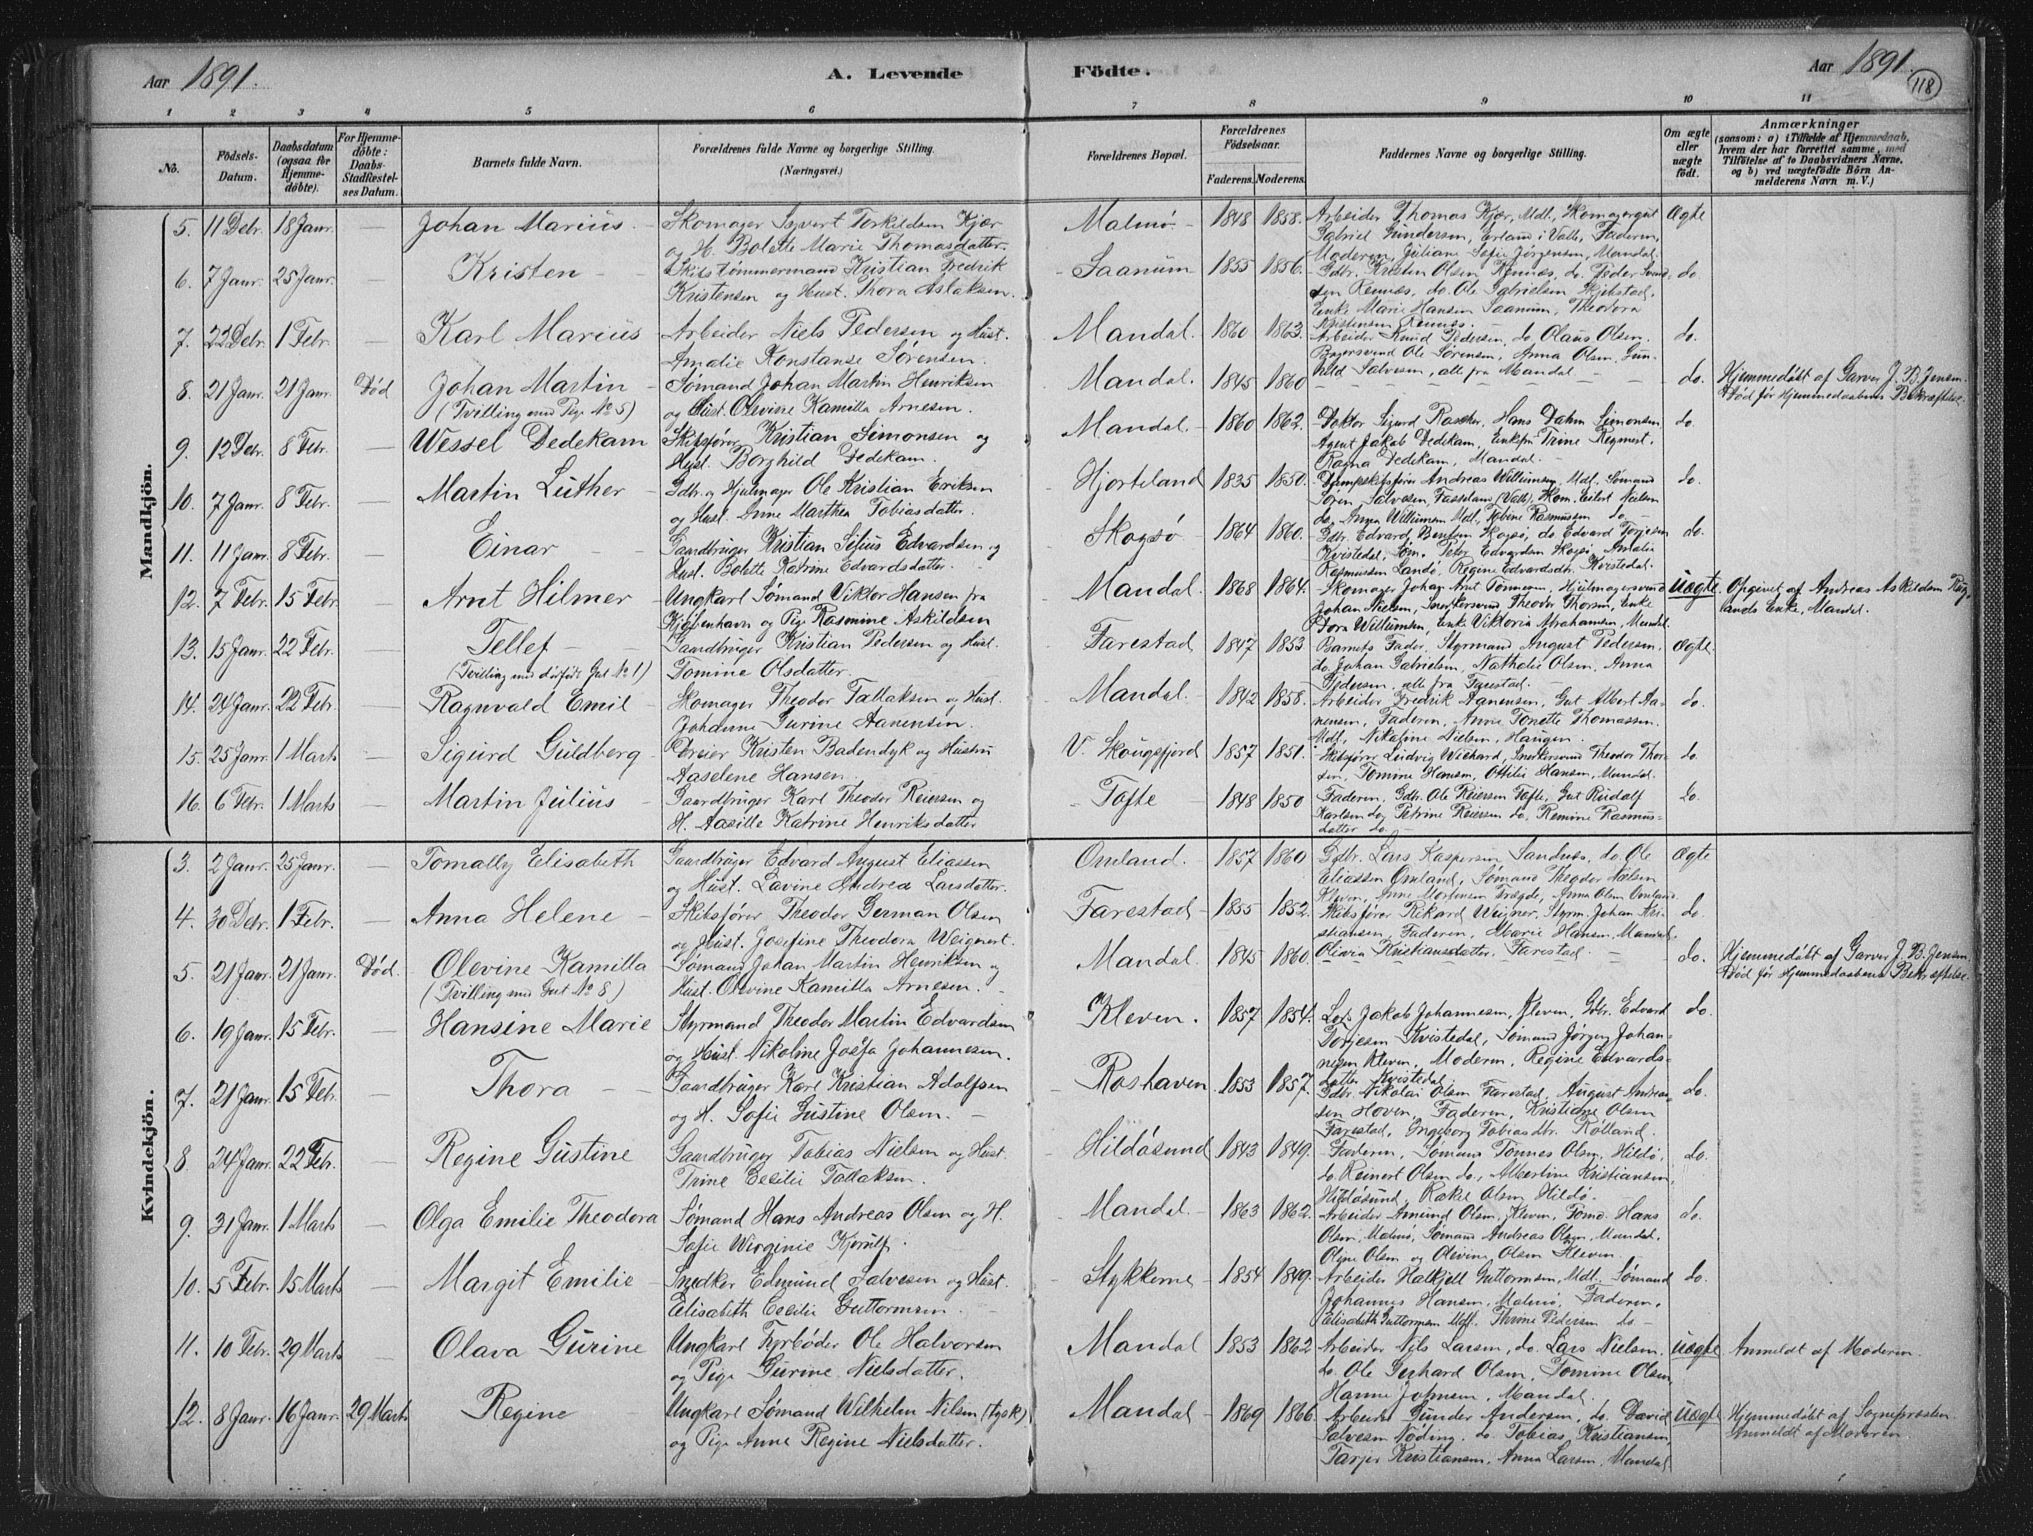 Aar 1891. A. Levende Fødte. Aar 1891. 118
1 2 3 4 5 6 7 8 9 10 11
No. Födsels-Datum. Daabsdatum (ogsaa for Hjemmedöbte). For Hjemmedöbte: Daabs-Stadfæstelses Datum. Barnets fulde Navn. Forældrenes fulde Navne og borgerlige Stilling. (Næringsvei.) Forældrenes Bopæl. Forældrenes Födselsaar. Faderens. Moderens. Faddernes Navne og borgerlige Stilling. Om ægte eller uægte födt. Anmærkninger (saasom: a) i Tilfælde af Hjemmedaab, hvem der har forrettet samme, med Tilföielse af to Daabsvidners Navne, og b) ved uægtefödte Börn Anmelderens Navn m. V.)
Mandkjön.
5. 11 Debr. 18 Janr. — Johan Marius. Skomager Syvert Torkildsen Kjær Malmø 1848 1858. Arbeider Thomas Kjær, Mdl, Skomagergut Ægte
og H. Bolette Marie Thomasdatter. Gabriel Gundersen, Erland i Valle, Faderen,
Moderen, Juliane Sofie Jørgensen, Mandal.
6. 7 Janr. 25 Janr. — Kristen Skibstømmermand Kristian Fredrik Saanum 1855 1856. Gdbr. Kristen Olsen Rennes, do. Peder
Kristensen og Hust. Thora Aslaksen. Rennes, do. Ole Gabrielsen Skjebstad, do.
Enke Marie Hansen Saanum, Theodora
Kristensen Rennes.
7. 22 Debr. 1 Febr. — Karl Marius Arbeider Niels Pedersen og Hust. Mandal. 1860 1863. Arbeider Knud Pedersen, do. Olaus Olsen. do.
Amalie Konstanse Sørensen. Ole Sørensen, Anna Olsen, Gunhild Salvesen, alle fra Mandal
8. 21 Janr. 21 Janr. Død Johan Martin Sømand Johan Martin Henriksen Mandal. 1845 1860 — do. Hjemmedøbt af Garver J. B. Jensen.
(Tvilling med Pige No 5) og Hust. Olevine Kamilla Arnesen. Død før Hjemmedaabens Bekræftelse
9. 12 Debr. 8 Febr. — Wessel Dedekam Skibsfører Kristian Simonsen og Mandal. 1860 1862. Doktor Sigurd Roscher, Hans Dahm Simonsen do.
Hust. Borghild Dedekam. Agent Jakob Dedekam, Enkefru Trine Regmert.
Ragna Dedekam, Mandal.
10. 7 Janr. 8 Febr. — Martin Luther Gdbr. og Hjulmager Ole Kristian Eriksen Hjorteland 1835 1850. Dampskibsfører Andreas Willumsen, Mdl. Sømand do.
og Hust. Anne Marthea Tobiasdatter. Søren Salvesen, Fasseland (Valle), Skom. Eilert Nielsen
do. Anna Willumsen Mdl., Tobine Rasmussen do.
11. 11 Janr. 8 Febr. — Einar Gaardbruger Kristian Sefus Edvardsen og Skogsø 1864 1860. Gdbr. Edvard Bentsen Skogsø, do Edvard Torjesen do.
Hust. Bolette Katrine Edvardsdatter. Kvistedal, Søm. Peter Edvardsen Skogsø, Amalie
Rasmussen Landø, Regine Edvardsdtr. Kvistedal.
12. 7 Febr. 15 Febr. — Arnt Hilmer Ungkarl Sømand Viktor Hansen fra Mandal 1868 1864. Skomager Johan Arnt Tønnesen, Hjulmagersvend Uægte Opgivet af Andreas Askildsen
Kjøbenhavn og Pige Rasmine Askildsen Johan Nielsen, Snekkersvend Theodor Thorsen, Enke lands Enke, Mandal.
Dora Willumsen, Enke Viktoria Abrahamsen, Mandal
13. 15 Janr. 22 Febr. — Tellef Gaardbruger Kristian Pedersen og Hust. Farestad 1847 1853 Barnets Fader, Styrmand August Pedersen, Ægte
(Tvilling med dødfødt Gut No 1) Tomine Olsdatter. do. Johan Gabrielsen, Nathalie Olsen, Anna
Pedersen, alle fra Farestad.
14. 24 Janr. 22 Febr. — Ragnvald Emil Skomager Theodor Tallaksen og Hust. Mandal. 1842 1858. Arbeider Fredrik Aanensen, Gut Albert Aanensen, Faderen, Anne Tonette Thomassen. do.
Johanne Gurine Aanensen. Mdl., Nikoline Nielsen, Haugen.
15. 25 Janr. 1 Marts — Sigurd Guldberg Dreier Kristen Badendyk og Hustru V. Skougsfjord 1857 1851. Skibsfører Ludvig Wichard, Snekkersvend Theodor Thorsen, Tomine Hansen, Ottilie Hansen, Mandal. do.
Aaselene Hansen.
16. 6 Febr. 1 Marts — Martin Julius Gaardbruger Karl Theodor Reiersen og Tofte 1848 1850 Faderen, Gdbr. Ole Reiersen Tofte, Gut Rudolf do.
H. Aasille Katrine Henriksdatter Karlsen do, Petrine Reiersen do, Remine Rasmusdatter do.
Kvindekjön.
3. 2 Janr. 25 Janr. — Tomally Elisabeth Gaardbruger Edvard August Eliassen Omland. 1857 1860 Gdbr. Lars Kaspersen Sandnes, do. Ole Ægte
og Hust. Lavine Andrea Larsdatter. Eliassen Omland, Sømand Theodor Nielsen
Kleven, Anne Mortensen Tregde, Anna Olsen Omland
4. 30 Debr. 1 Febr. — Anna Helene Skibsfører Theodor German Olsen Farestad 1855 1852. Skibsfører Rikard Weigner, Styrm. Johan Kristiansen, Faderen, Marie Hansen, Mandal do.
og Hust. Josefine Theodora Weignert. Olivia Kristiansdatter, Farestad.
5. 21 Janr. 21 Janr. Død. Olevine Kamilla Sømand Johan Martin Henriksen og Mandal 1845 1860. — do. Hjemmedøbt af Garver J. B. Jensen
(Tvilling med Gut No 8) Hust. Olevine Kamilla Arnesen. Død før Hjemmedaabens Bekræftelse
6. 19 Janr. 15 Febr. — Hansine Marie Styrmand Theodor Martin Edvardsen Kleven. 1857 1854. Lods Jakob Johannesen, Kleven, Gdbr. Edvard do.
og Hust. Nikoline Josefa Johannesen. Torjesen Kvistedal, Sømand Jørgen Johannesen Kleven, Moderen, Regine Edvardsdatter Kvistedal
7. 21 Janr. 15 Febr. — Thora Gaardbruger Karl Kristian Adolfsen Roshaven 1853 1857. Gdbr. Nikolai Olsen Farestad, August Andreassen Hoven, Faderen, Kristiane Olsen do.
og H. Sofie Gustine Olsen. Farestad, Ingeborg Tobiasdtr. Rolland.
8. 24 Janr. 22 Febr. — Regine Gustine Gaardbruger Tobias Nielsen og Hust. Hildøsund 1843 1849. Faderen, Sømand Tønnes Olsen, Hildø, do.
Trine Cecilie Tallaksen. do. Reinert Olsen do., Albertine Kristiansen,
Hildøsund, Rakel Olsen, Hildø.
9. 31 Janr. 1 Marts — Olga Emilie Theodora Sømand Hans Andreas Olsen og H. Mandal 1863 1862. Arbeider Amund Olsen, Kleven, Tømd. Hans do.
Sofie Wirginie Kjerulf. Olsen, Malmø, Sømand Andreas Olsen, Mandal.
Oline Olsen og Olevine Olsen Kleven.
10. 5 Febr. 15 Marts — Margit Emilie Snedker Edmund Salvesen og Hust. Stykkerne 1854 1849. Arbeider Halkjell Guttormsen, Mdl. Sømand do.
Elisabeth Cecilie Guttormsen. Johannes Hansen, Malmø, Faderen,
Elisabeth Guttormsen Mdl. Thrine Pedersen do
11. 10 Febr. 29 Marts — Olava Gurine Ungkarl Fyrbøder Ole Halvorsen Mandal 1853 1862 Arbeider Nils Larsen, do. Lars Nielsen. Uægte Anmeldt af Moderen.
og Pige Gurine Nielsdatter. do. Ole Gerhard Olsen, Tomine Olsen,
Hanne Johnsen, Mandal.
12. 8 Janr. 16 Janr. 29 Marts Regine Ungkarl Sømand Wilhelm Nilsen (tysk) Mandal 1869 1866. Arbeider Gunder Andersen, do. David Uægte Hjemmedøbt af Sognepresten
og Pige Anne Regine Nielsdatter. Salvesen Nøding, do Tobias Kristiansen, Anmeldt af Moderen
Tarjer Kristiansen, Anna Larsen, Mandal